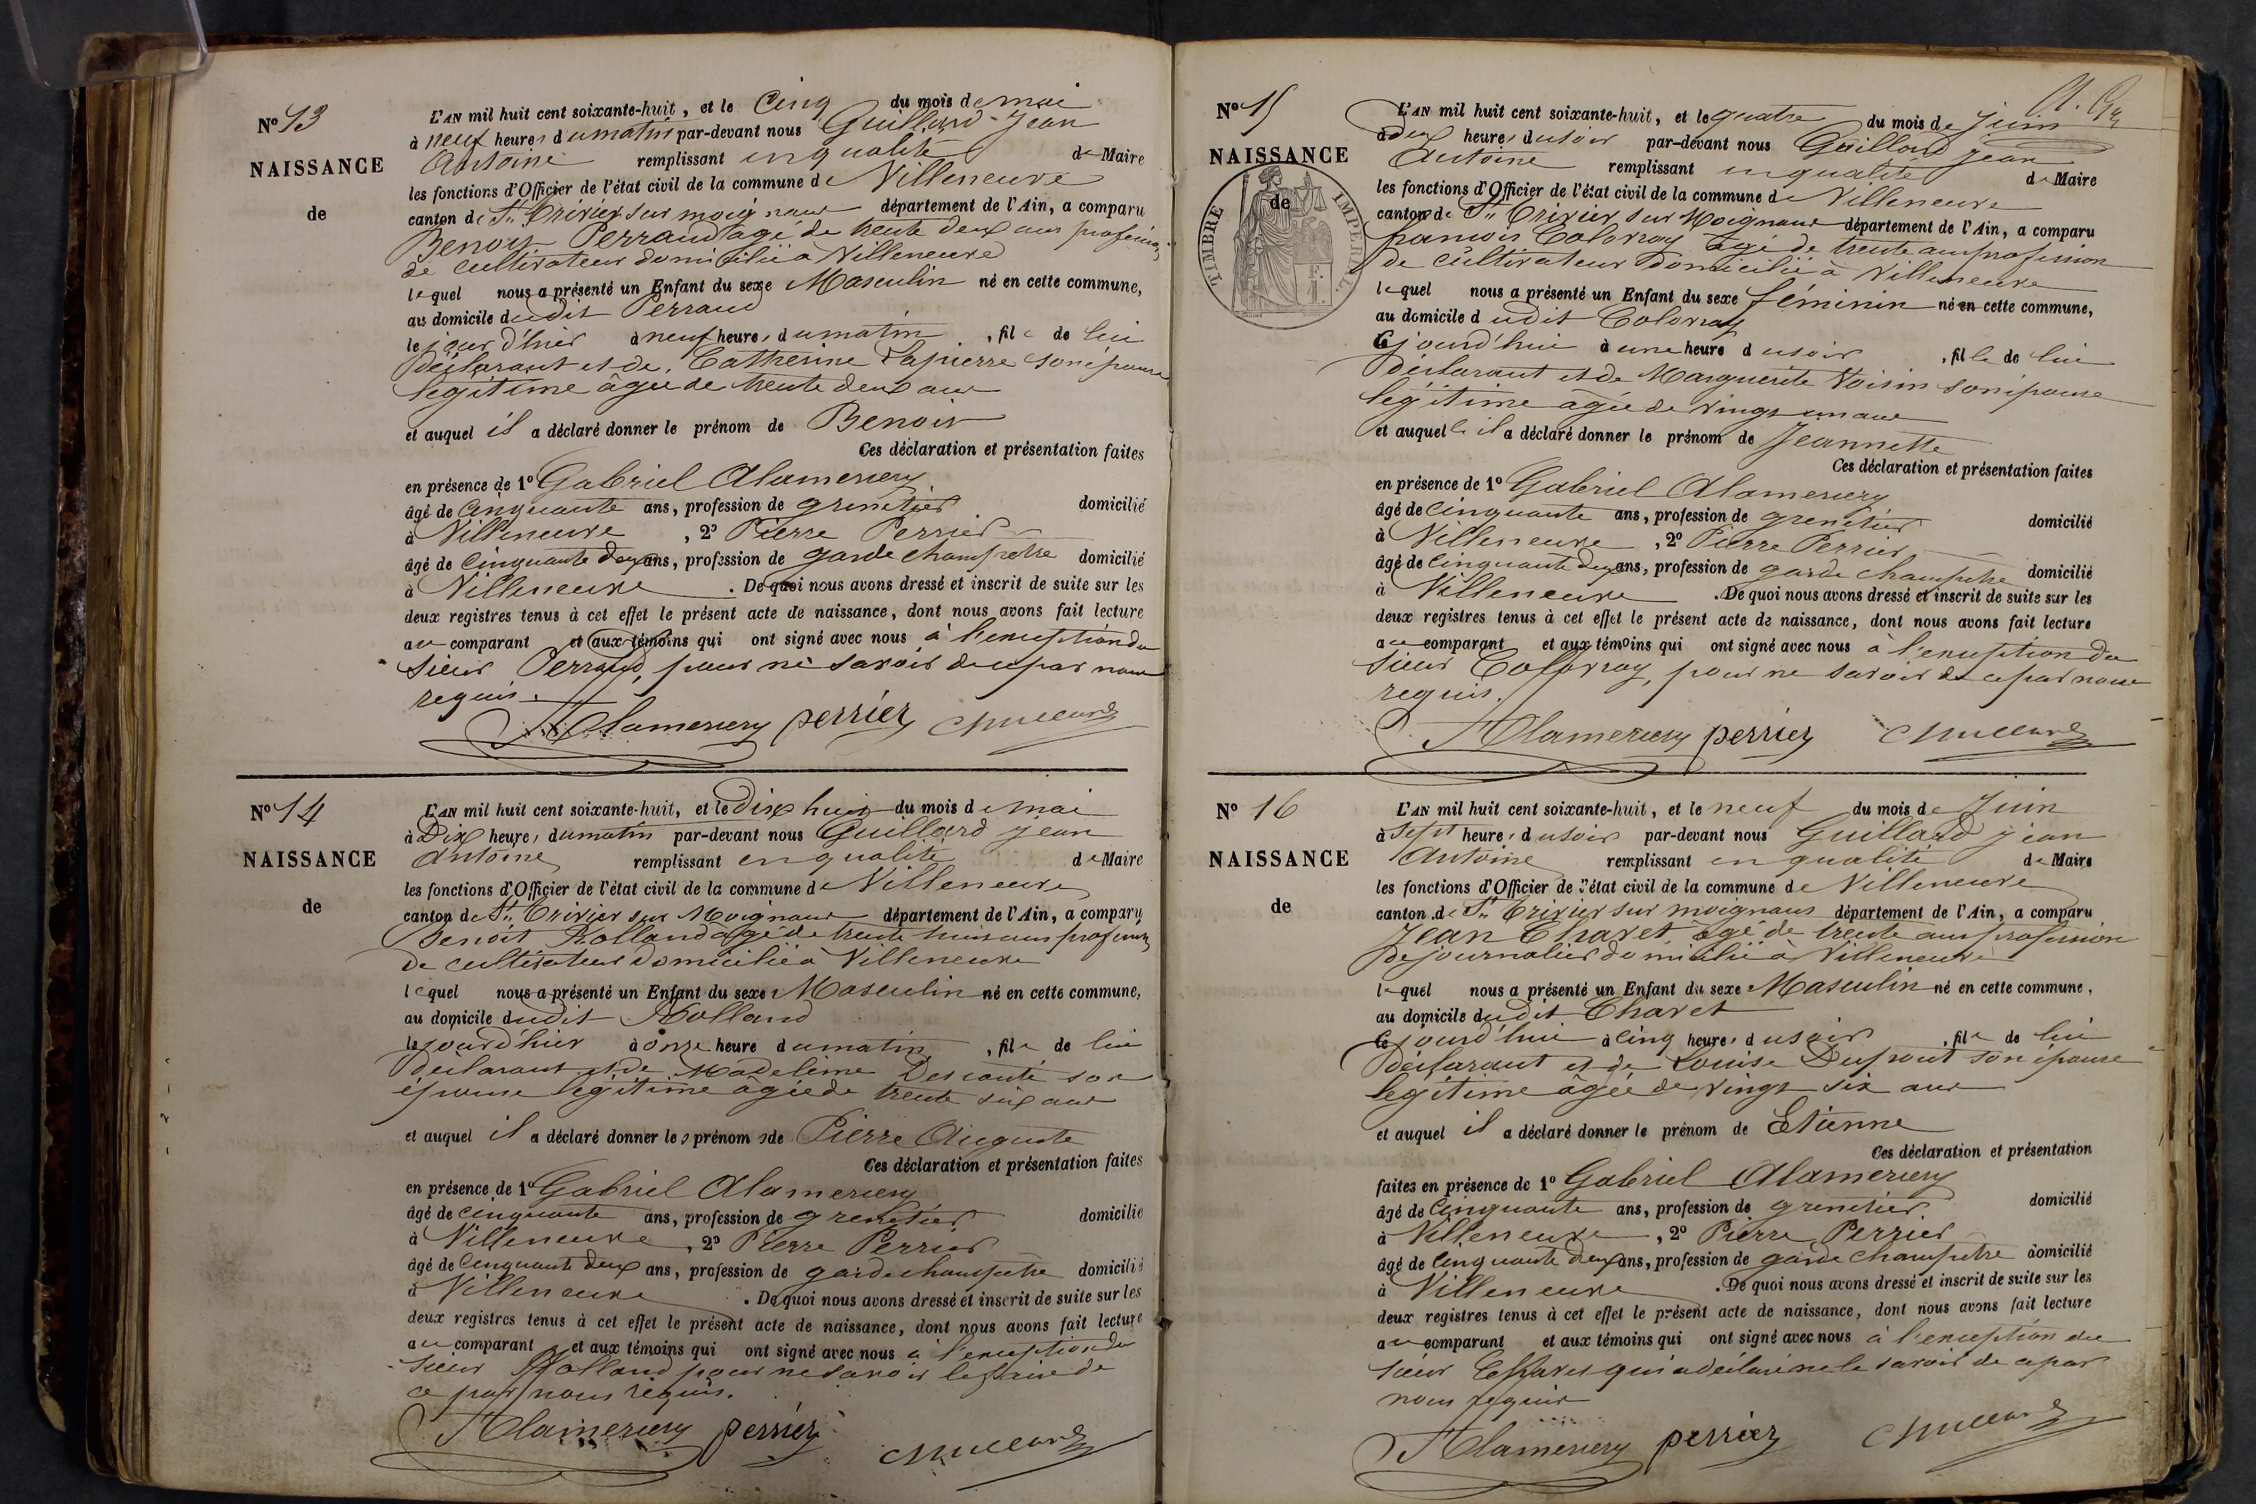 No 13
NAISSANCE
de
L'AN mil huit cent soixante-huit, et le Cinq du mois de mai
à neuf heures du matin par-devant nous Guillard Jean
Antoine remplissant en qualité de Maire
les fonctions d'Officier de l'état civil de la commune de Villeneuve
canton de St. Trivier sur moignans département de l'Ain, a comparu
Benoit Perraud agé de trente deux ans profession
de cultivateur domicilié à Villeneuve
lequel nous a présenté un Enfant du sexe Masculin né en cette commune,
au domicile dudit Perraud
le jour d'hier à neuf heures du matin, fils de lui
déclarant et de Catherine Lapierre son épouse
légitime âgée de trente deux ans
et auquel il a déclaré donner le prénom de Benoit
Ces déclaration et présentation faites
en présence de 1º Gabriel Alamercery
âgé de cinquante ans, profession de grenetier domicilié
à Villeneuve, 2º Pierre Perrier
âgé de cinquante deux ans, profession de garde champetre domicilié
à Villeneuve. De quoi nous avons dressé et inscrit de suite sur les
deux registres tenus à cet effet le présent acte de naissance, dont nous avons fait lecture
au comparant et aux témoins qui ont signé avec nous à l'exception du
sieur Perraud, pour ne savoir de ce par nous
requis.
Alamercery perrier Guillard
No 14
NAISSANCE
de
L'AN mil huit cent soixante-huit, et le Dix huit du mois de mai
à Dix heures du matin par-devant nous Guillard Jean
Antoine remplissant en qualité de Maire
les fonctions d'Officier de l'état civil de la commune de Villeneuve
canton de St. Trivier sur Moignans département de l'Ain, a comparu
Benoit Rolland âgé de trente huit ans profession
de cultivateur domicilié à Villeneuve
lequel nous a présenté un Enfant du sexe Masculin né en cette commune,
au domicile dudit Rolland
le jour d'hier à onze heure du matin, fils de lui
déclarant et de Madeleine son
épouse légitime âgée de trente six ans
et auquel il a déclaré donner les prénoms de Pierre Auguste
Ces déclaration et présentation faites
en présence de 1º Gabriel Alamercery
âgé de cinquante ans, profession de grenetier domicilié
à Villeneuve, 2º Pierre Perrier
âgé de cinquante deux ans, profession de garde champetre domicilié
à Villeneuve. De quoi nous avons dressé et inscrit de suite sur les
deux registres tenus à cet effet le présent acte de naissance, dont nous avons fait lecture
au comparant et aux témoins qui ont signé avec nous à l'exception du
sieur Rolland pour ne savoir le faire de
ce par nous requis.
Alamercery perrier Guillard
No 15
NAISSANCE
de
TIMBRE IMPERIAL
L'AN mil huit cent soixante-huit, et le quatre du mois de juin
à deux heures du soir par-devant nous Guillard Jean
Antoine remplissant en qualité de Maire
les fonctions d'Officier de l'état civil de la commune de Villeneuve
canton de St. Trivier sur Moignans département de l'Ain, a comparu
francois Colovray âgé de trente ans profession
de cultivateur domicilié à Villeneuve
lequel nous a présenté un Enfant du sexe féminin né en cette commune,
au domicile dudit Colovray
Cejourd'hui à une heure du soir, fille de lui
déclarant et de Marguerite Voisin son épouse
légitime agée de vingt un ans
et auquelle il a déclaré donner le prénom de Jeannette
Ces déclaration et présentation faites
en présence de 1º Gabriel Alamercery
âgé de cinquante ans, profession de grenetier domicilié
à Villeneuve, 2º Pierre Perrier
âgé de cinquante deux ans, profession de garde champetre domicilié
à Villeneuve. De quoi nous avons dressé et inscrit de suite sur les
deux registres tenus à cet effet le présent acte de naissance, dont nous avons fait lecture
au comparant et aux témoins qui ont signé avec nous à l'exception du
sieur Colovray, pour ne savoir de ce par nous
requis.
Alamercery perrier Guillard
No 16
NAISSANCE
de
L'AN mil huit cent soixante-huit, et le neuf du mois de Juin
à sept heures du soir par-devant nous Guillard Jean
Antoine remplissant en qualité de Maire
les fonctions d'Officier de l'état civil de la commune de Villeneuve
canton de St. Trivier sur moignans département de l'Ain, a comparu
Jean Charet âgé de trente ans profession
de journalier domicilié à Villeneuve
lequel nous a présenté un Enfant du sexe Masculin né en cette commune,
au domicile dudit Charet
Cejourd'hui à cinq heures du soir, fils de lui
déclarant et de Louise Dupont son épouse
légitime âgée de vingt six ans
et auquel il a déclaré donner le prénom de Etienne
Ces déclaration et présentation
faites en présence de 1º Gabriel Alamercery
âgé de cinquante ans, profession de grenetier domicilié
à Villeneuve, 2º Pierre Perrier
âgé de cinquante deux ans, profession de garde champetre domicilié
à Villeneuve. De quoi nous avons dressé et inscrit de suite sur les
deux registres tenus à cet effet le présent acte de naissance, dont nous avons fait lecture
au comparant et aux témoins qui ont signé avec nous à l'exception du
sieur Charet qui a déclaré ne le savoir de ce par
nous requis
Alamercery perrier Guillard